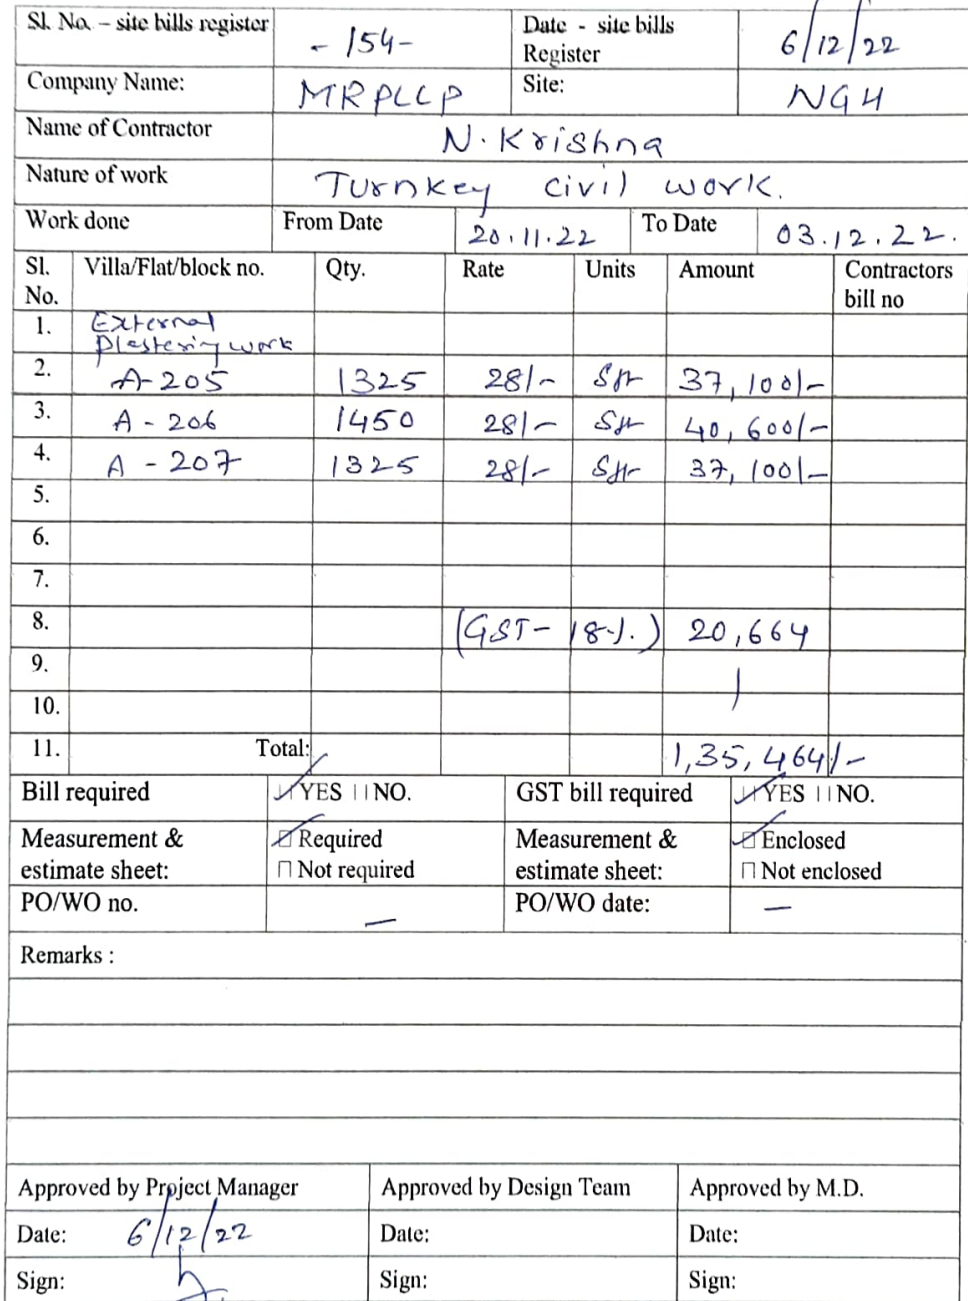 Sl. No. – site bills register - 154- Date - site bills Register 6/12/22
Company Name: MRPLLP Site: NGH
Name of Contractor N. Krishna
Nature of work Turnkey civil work.
Work done From Date 20.11.22 To Date 03.12.22.
Sl. No. Villa/Flat/block no. Qty. Rate Units Amount Contractors bill no
1. External Plastering work
2. A-205 1325 28/- Sft 37,100/-
3. A - 206 1450 28/- Sft 40,600/-
4. A - 207 1325 28/- Sft 37,100/-
5.
6.
7.
8. (GST- 18%.) 20,664
9.
10.
11. Total: 1,35,464/-
Bill required YES NO. GST bill required YES NO.
Measurement & estimate sheet: Required Measurement & estimate sheet: Enclosed
Not required Not enclosed
PO/WO no. — PO/WO date: —
Remarks :
Approved by Project Manager Approved by Design Team Approved by M.D.
Date: 6/12/22 Date: Date:
Sign: Sign: Sign: